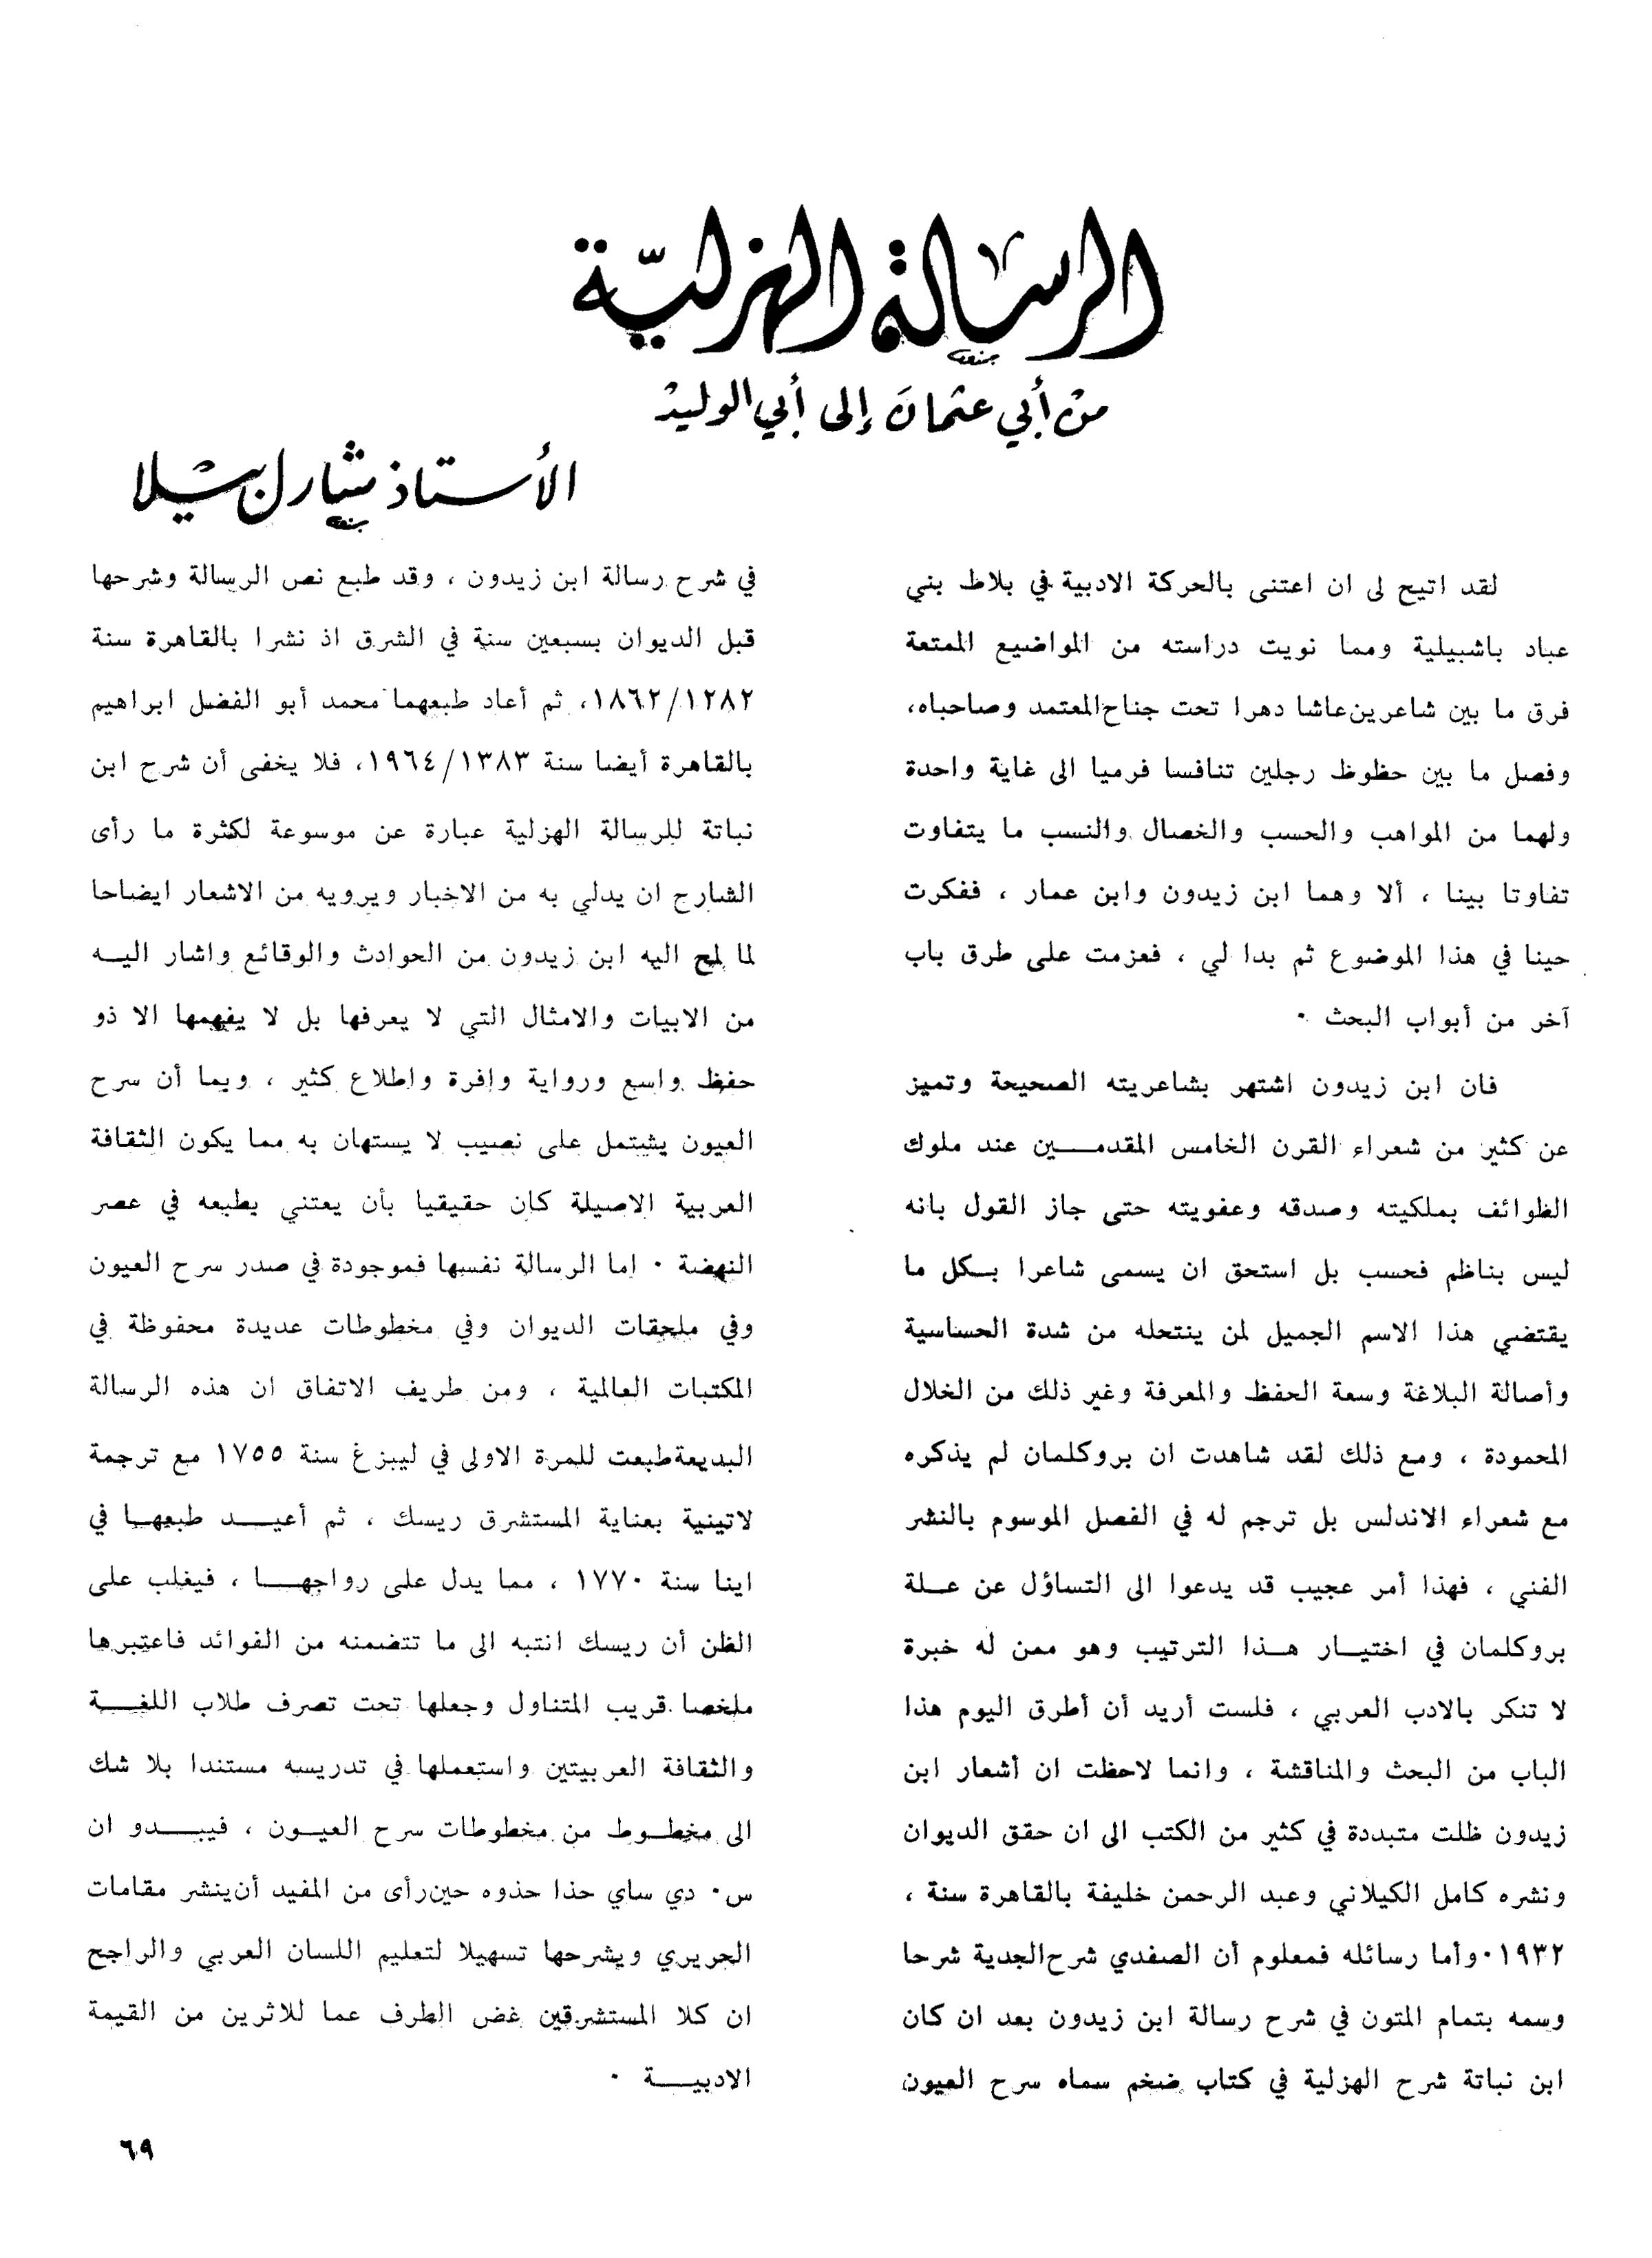 الرسالة الهزليّة
من أبي عثمان إلى أبي الوليد
الأستاذ شارل بيلا
لقد اتيح لى ان اعتنى بالحركة الادبية في بلاط بني
عباد باشبيلية ومما نويت دراسته من المواضيع الممتعة
فرق ما بين شاعرين عاشا دهرا تحت جناح المعتمد وصاحباه،
وفصل ما بين حظوظ رجلين تنافسا فرميا الى غاية واحدة
ولهما من المواهب والحسب والخصال والنسب ما يتفاوت
تفاوتا بينا ، ألا وهما ابن زيدون وابن عمار ، ففكرت
حينا في هذا الموضوع ثم بدا لي ، فعزمت على طرق باب
آخر من أبواب البحث ٠
فان ابن زيدون اشتهر بشاعريته الصحيحة وتميز
عن كثير من شعراء القرن الخامس المقدمـــين عند ملوك
الطوائف بملكيته وصدقه وعفويته حتى جاز القول بانه
ليس بناظم فحسب بل استحق ان يسمى شاعرا بـكل ما
يقتضي هذا الاسم الجميل لمن ينتحله من شدة الحساسية
وأصالة البلاغة وسعة الحفظ والمعرفة وغير ذلك من الخلال
المحمودة ، ومع ذلك لقد شاهدت ان بروكلمان لم يذكره
مع شعراء الاندلس بل ترجم له في الفصل الموسوم بالنشر
الفني ، فهذا أمر عجيب قد يدعوا الى التساؤل عن عــلة
بروكلمان في اختيـــار هــذا الترتيب وهو ممن له خبرة
لا تنكر بالادب العربي ، فلست أريد أن أطرق اليوم هذا
الباب من البحث والمناقشة ، وانما لاحظت ان أشعار ابن
زيدون ظلت متبددة في كثير من الكتب الى ان حقق الديوان
ونشره كامل الكيلاني وعبد الرحمن خليفة بالقاهرة سنة ،
١٩٣٢٠وأما رسائله فمعلوم أن الصفدي شرح الجدية شرحا
وسمه بتمام المتون في شرح رسالة ابن زيدون بعد ان كان
ابن نباتة شرح الهزلية في كتاب ضخم سماه سرح العيون
في شرح رسالة ابن زيدون ، وقد طبع نص الرسالة وشرحها
قبل الديوان بسبعين سنة في الشرق اذ نشرا بالقاهرة سنة
١٨٦٢/١٢٨٢، ثم أعاد طبعهما محمد أبو الفضل ابراهيم
بالقاهرة أيضا سنة ١٩٦٤/١٣٨٣، فلا يخفى أن شرح ابن
نباتة للرسالة الهزلية عبارة عن موسوعة لكثرة ما رأى
الشارح ان يدلي به من الاخبار ويرويه من الاشعار ايضاحا
لما لمح اليه ابن زيدون من الحوادث والوقائع واشار اليــه
من الابيات والامثال التي لا يعرفها بل لا يفهمها الا ذو
حفظ واسع ورواية وافرة واطلاع كثير ، وبما أن سرح
العيون يشتمل على نصيب لا يستهان به مما يكون الثقافة
العربية الاصيلة كان حقيقيا بأن يعتني بطبعه في عصر
النهضة ٠ اما الرسالة نفسها فموجودة في صدر سرح العيون
وفي ملحقات الديوان وفي مخطوطات عديدة محفوظة في
المكتبات العالمية ، ومن طريف الاتفاق ان هذه الرسالة
البديعة طبعت للمرة الاولى في ليبزغ سنة ١٧٥٥ مع ترجمة
لاتينية بعناية المستشرق ريسك ، ثم أعيـــد طبعهــا في
اينا سنة ١٧٧٠ ، مما يدل على رواجهـــا ، فيغلب على
الظن أن ريسك انتبه الى ما تتضمنه من الفوائد فاعتبرها
ملخصا قريب المتناول وجعلها تحت تصرف طلاب اللغـــة
والثقافة العربيتين واستعملها في تدريسه مستندا بلا شك
الى مخطــوط من مخطوطات سرح العيــون ، فيبـــدو ان
س٠ دي ساي حذا حذوه حين رأى من المفيد أن ينشر مقامات
الحريري ويشرحها تسهيلا لتعليم اللسان العربي والراجح
ان كلا المستشرقين غض الطرف عما للاثرين من القيمة
الادبيـــة ٠
٦٩